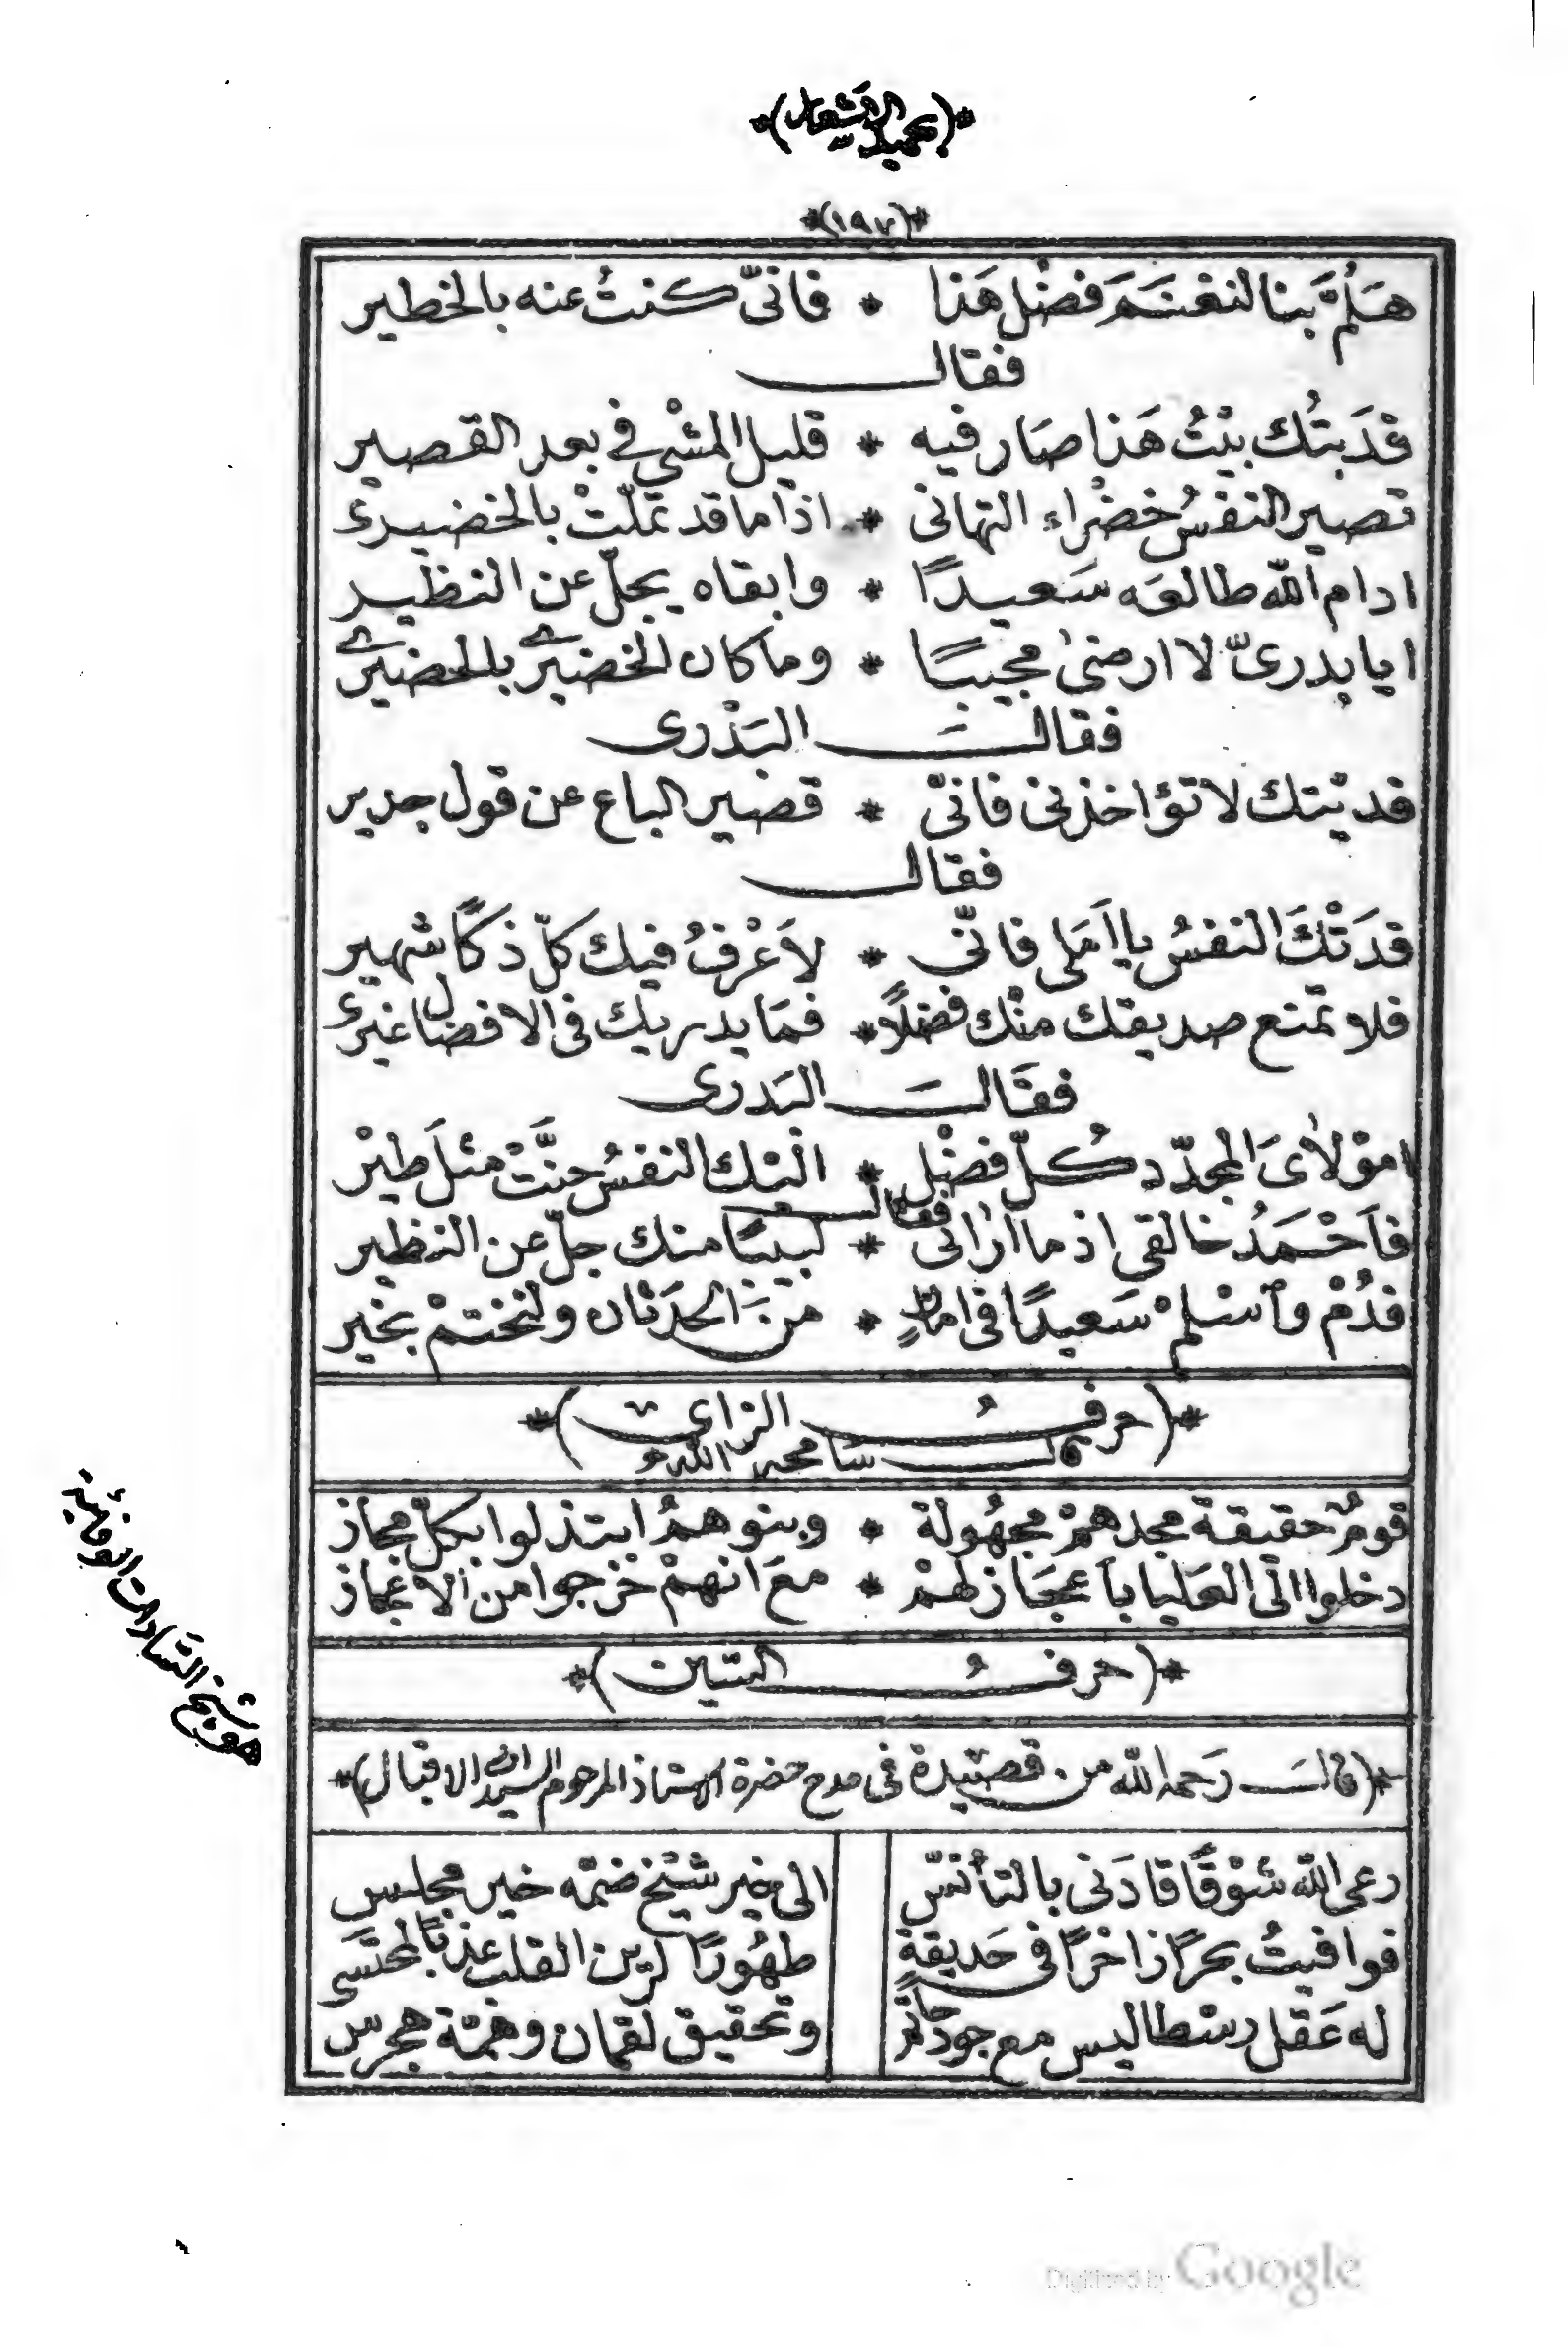 *(بحميد الاشعار)*
*(١٩٧)*
هَلُمَّ بَنا لنغنَمَ فضْل هَذا * فانىّ كنتُ عنه بالخطير
فقال
فدَيتُك بيْتُ هَذا صَار فيه * قليل المشْى فى بعد القصير
تصير النفسُ خضْراء التهانى * اذا ما قد تملّتْ بالخضيرى
ادام الله طالعَه سَعيدًا * وابقاه يجلّ عن النظير
ايا بدرىّ لا ارضىٰ مجيبًا * وما كان الخضيرىّ بالحضيرى
فقالَ البَدْرى
فديْتك لا تؤاخذنى فانىّ * قصير الباع عن قول جدير
فقال
فدَتْكَ النفسُ يا اَمَلى فانّى * لاَعْرفُ فيك كلّ ذكًا شهير
فلا تمنع صديقك منْك فضلًا * فمَا يدريك فى الافضال غيرى
فقَالَ البَدرى
امَوْلاىَ المجدّد كُلّ فضْلٍ * اليْك النفسُ حنَّتْ مثلَ طيْر
فقال
فاَحْمَدُ خالقى اذ ما ارانى * لبيبًا منك جلّ عن النظير
فدُمْ واسْلمْ سَعيدًا فى امانٍ * منَ الحدَثان ولنختمْ بخير
*(حرفُ الزاى)*
قال سامحه الله
قومٌ حقيقة مجدهمْ مجهُولة * وبنوهمُ ابتذلوا بكلّ مجاز
دخلوا الى العَليا باَعجَاز لهمْ * معَ انهمْ خرجوا من الاعجاز
*(حرفُ السين)*
*(قال رَحمه الله من قصيْدة فى مدح حضرة الاستاذ المرحوم السيد ابو الاقبال)*
هو شيخ السَّادات الوفائية
رعى الله شوْقًا قادَنى بالتأنسّ الى خير شيْخ ضمّه خير مجلس
فوافيتُ بحرًا زاخرًا فى حَديقةٍ طهُورًا لرين القلب عذبًا لمحتَسى
له عَقل رسْطاليس مع جود حاتمٍ وتحقيق لقمان وهمّة هجرس
Digitized by Google